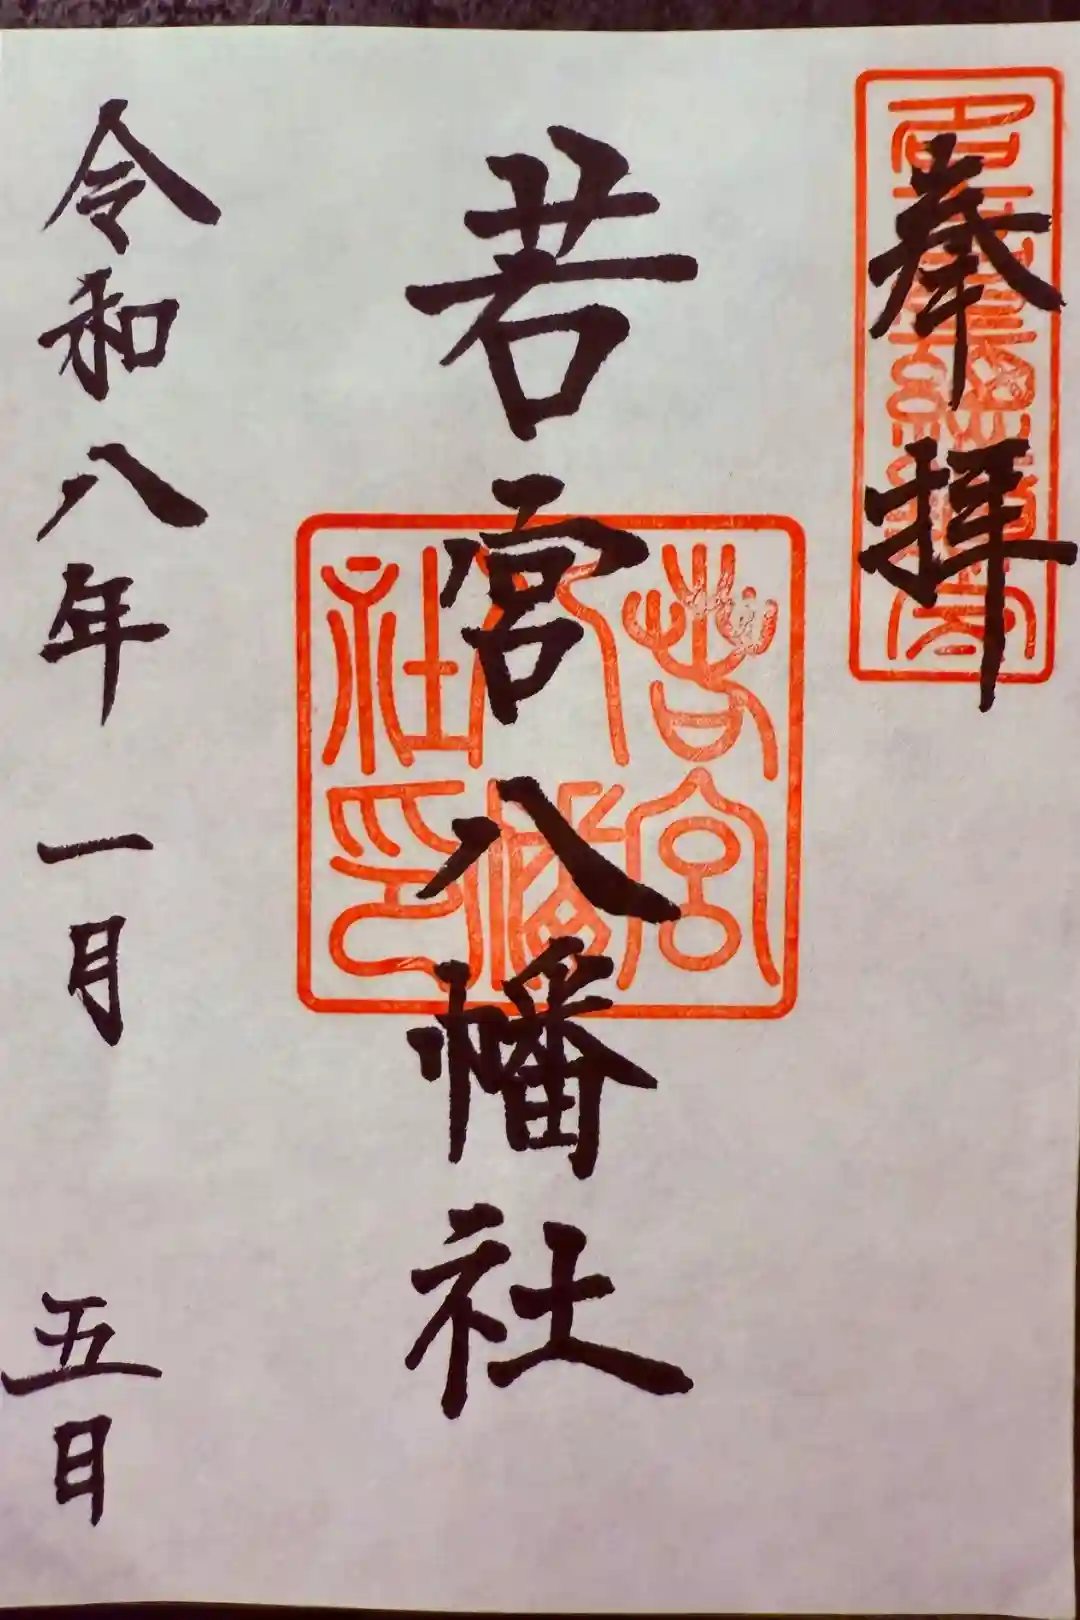 奉拝
若宮八幡社
若宮八幡社印
令和八年一月五日